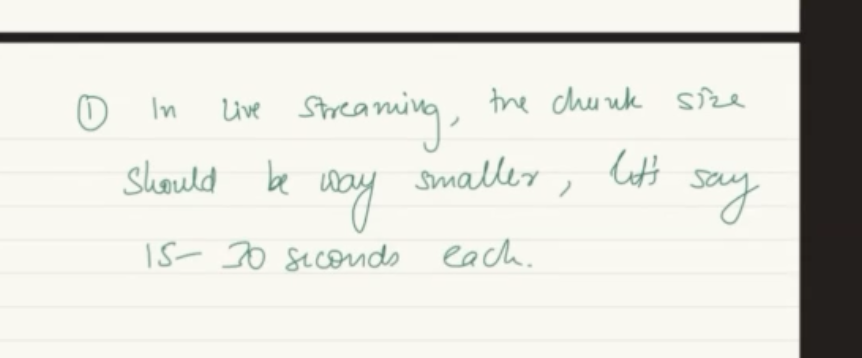 ① In live streaming, the chunk size
should be way smaller, let's say
15– 30 seconds each.